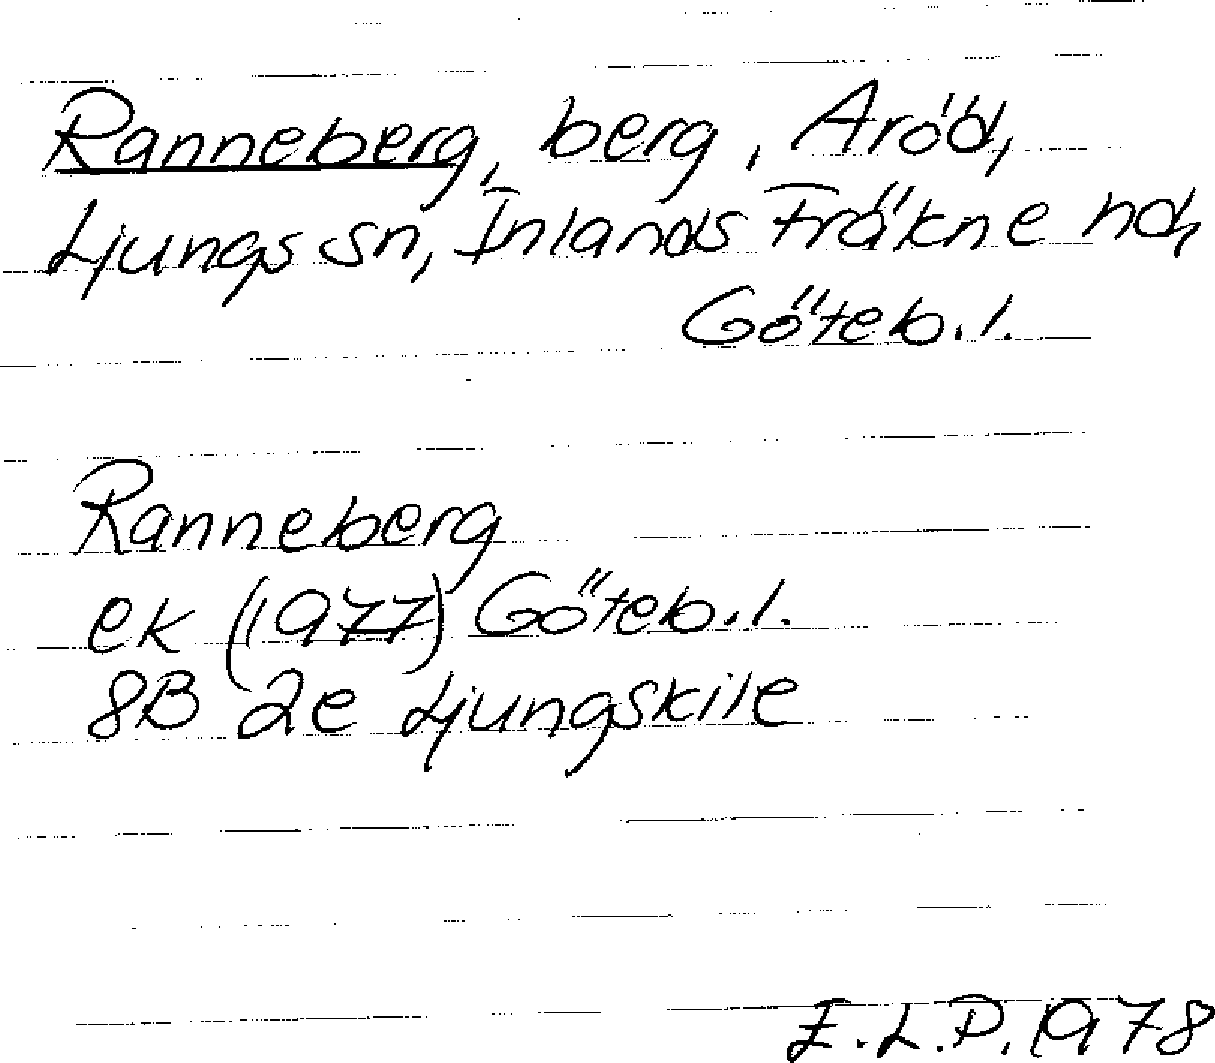 Ranneberg, berg, Aröd,
Ljungs sn, Inlands Fräkne hd,
Göteb.l.
Ranneberg
ek (1977) Göteb.l.
8B 2e Ljungskile
E.L.P. 1978